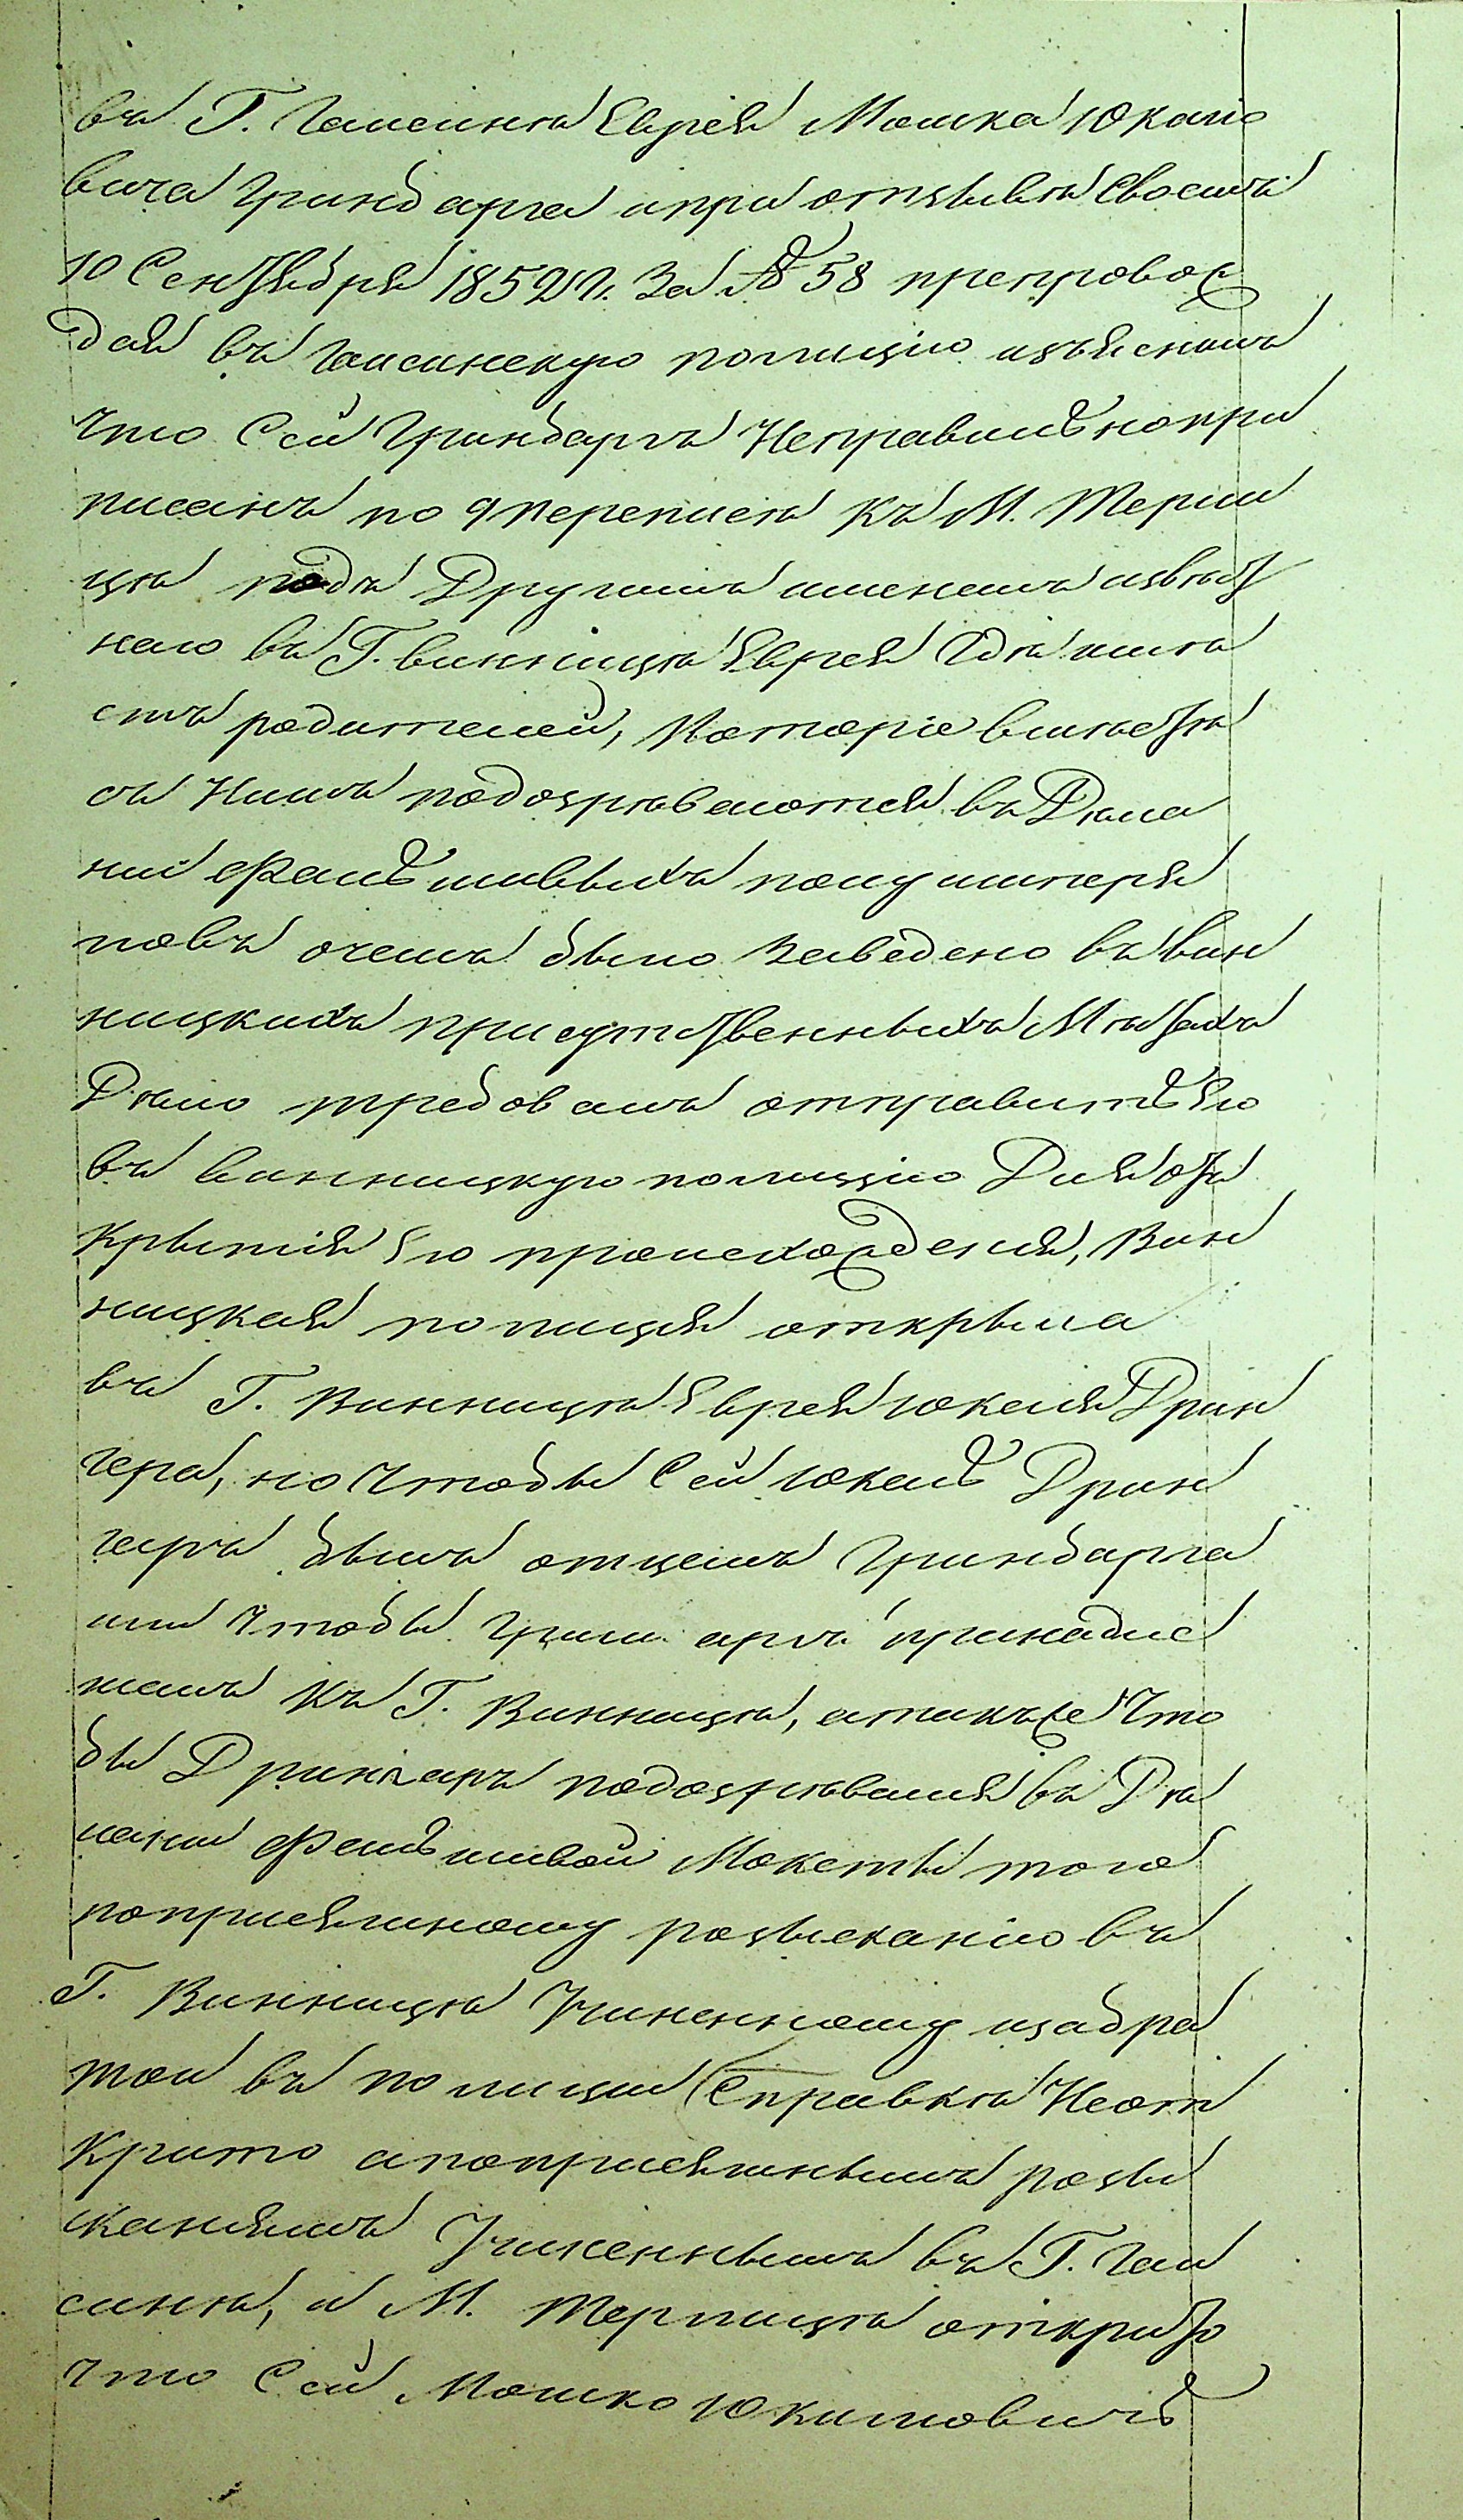 въ Г. Гаисинѣ Еврея Мошка Юкалѣ
вича Гринбарга ипри отзывѣ своемъ
10 Сентября 1852 г. За № 58 препровож
дая въ Гаисинскую полицію изъяснилъ
что Сей Гринбаргъ Неправильно при
писанъ по 9 переписѣ Къ М. Терли
цѣ подъ Другимъ именемъ извѣст
наго въ Г. винницѣ Еврея Гдѣ имѣ
етъ родителей, Которіе вмѣстѣ
съ Нимъ подозрѣваются въ Дѣла
ніи Фальшивыхъ полуимперія
ловъ очемъ было Заведено въ вин
ницкихъ присутственныхъ Мѣстахъ
Дѣло требовалъ отправить Его
въ винницкую полицію Для от
крытія Его происхожденія, Вин
ницкая полиція открыла
въ Г. Винницѣ Еврея Юкеля Дрин
гера, но Чтобы Сей Юкель Дрин
геръ былъ отцемъ Гринбарга
или Чтобы Грин арга принадле
жалъ Къ Г. Винницѣ, атакъже Что
бы Дрингеръ подозрѣвался въ Дѣ
лании Фальшивой Монеты того
поприсяжному розысканію въ
Г. Винницѣ Учиненному изабра
той въ полиции Справкѣ Неот
Крито апоприсяжнымъ розы
сканіямъ Учиненнымъ въ Г. Гаи
синѣ, и М. Терлицѣ открито
что Сей Мошко Юкилювичъ